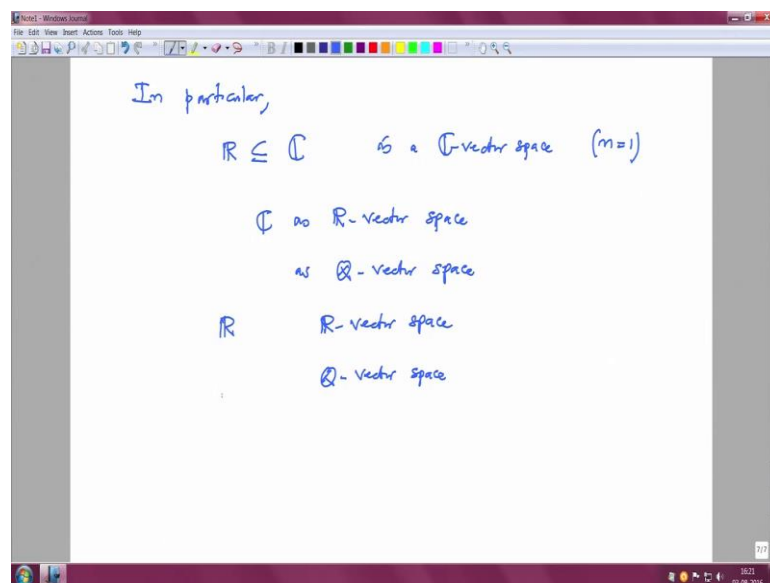 Note1 - Windows Journal
File Edit View Insert Actions Tools Help
In particular,
ℝ ⊆ ℂ is a ℂ-vector space (n=1)
ℂ as ℝ-vector space
as ℚ-vector space
ℝ ℝ-vector space
ℚ-vector space
7/7
16:21
03-08-2016